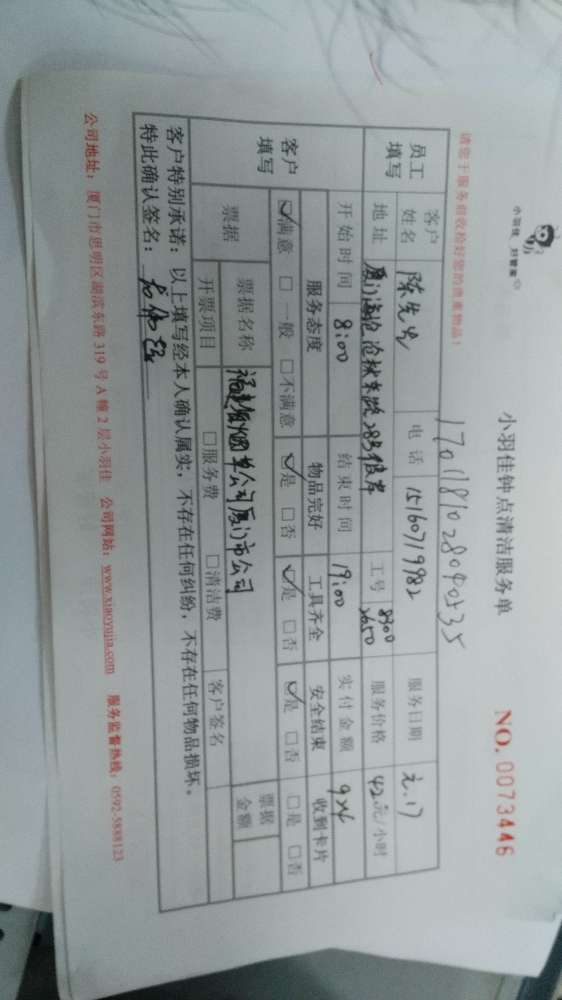 小羽佳 好管家
小羽佳钟点清洁服务单
NO. 0073446
请您于服务前收捡好您的贵重物品!
员工填写 客户姓名 陈先生 电话 15160719982 服务日期 元.17
地址 工号 8300 2650 服务价格 42元/小时
开始时间 8:00 结束时间 19:00 实付金额 924
客户填写 服务态度 物品完好 工具齐全 安全结束 收到卡片
☑满意 □一般 □不满意 ☑是 □否 ☑是 □否 ☑是 □否 □是 □否
票据 票据名称 福建省烟草公司厦门市公司 票据金额
开票项目 □服务费 □清洁费 客户签名
客户特别承诺:以上填写经本人确认属实,不存在任何纠纷,不存在任何物品损坏。
特此确认签名:
公司地址:厦门市思明区湖滨东路 319 号 A 幢 2 层小羽佳 公司网站:www.xiaoyujia.com 服务监督热线:0592-5888123